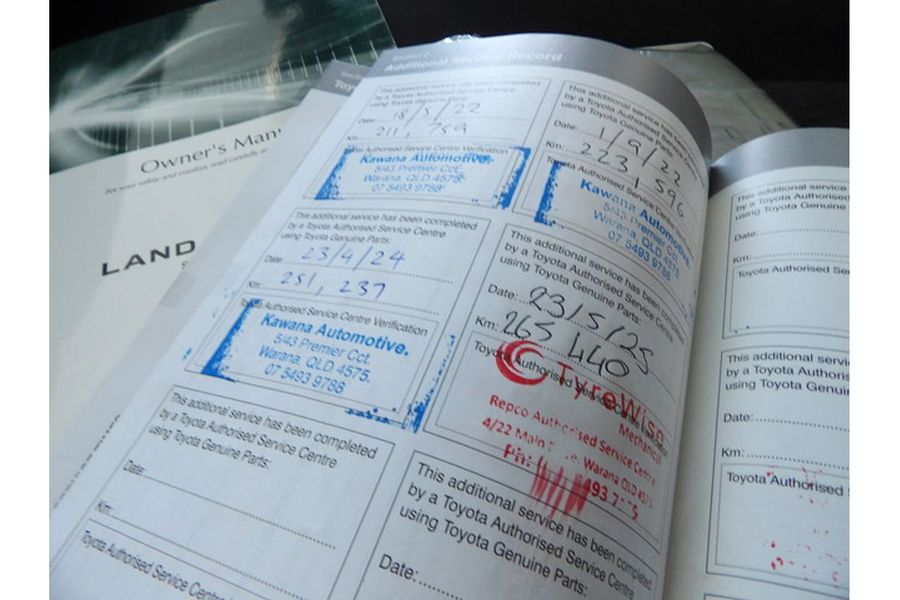 Owner's Manu
For your safety and comfort, read carefully a
LAND
Additional Service Record
This additional service has been completed
by a Toyota Authorised Service Centre
using Toyota Genuine Parts:
Date: 18/5/22
Km: 211, 759
Authorised Service Centre Verification
Kawana Automotive.
5/43 Premier Cct.
Warana, QLD 4575.
07 5493 9788
This additional service has been completed
by a Toyota Authorised Service Centre
using Toyota Genuine Parts:
Date: 1/9/22
Km: 223, 596
Toyota Authorised Service
Kawana Automotive.
5/43 Premier Cct.
Warana, QLD 4575.
07 5493 9788
This additional service has been completed
by a Toyota Authorised Service Centre
using Toyota Genuine Parts:
Date: 23/4/24
Km: 251, 237
Toyota Authorised Service Centre Verification
Kawana Automotive.
5/43 Premier Cct.
Warana, QLD 4575.
07 5493 9788
This additional service has been completed
by a Toyota Authorised Service Centre
using Toyota Genuine Parts:
Date: 23/5/25
Km: 265 440
Toyota Authorised Service Centre
TyreWise
Mechanical
Repco Authorised Service Centre
4/22 Main Warana QLD
Ph: 493
This additional service has been completed
by a Toyota Authorised Service Centre
using Toyota Genuine Parts:
Date:
Km:
Toyota Authorised Service Centre
This additional service has been completed
by a Toyota Authorised Service Centre
using Toyota Genuine Parts:
Date:
This additional service
by a Toyota Authorised
using Toyota Genuine
Date:
Km:
Toyota Authorised Ser
This additional servic
by a Toyota Authoris
using Toyota Genuin
Date:
Km:
Toyota Authorised S
This additional